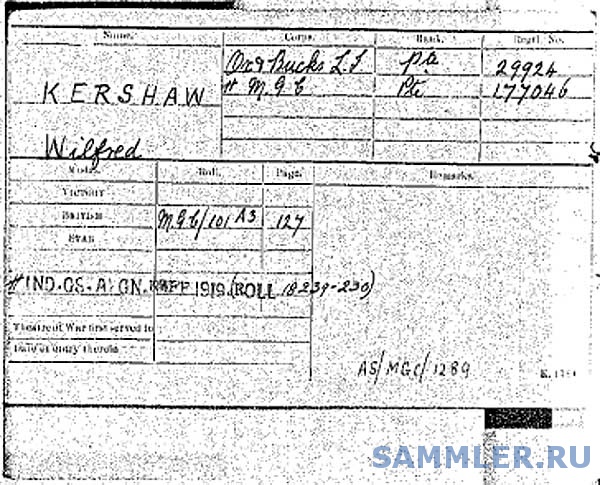 Name. Corps. Rank. Regtl. No.
KERSHAW
Wilfred
Ox & Bucks L.I. Pte 29924
# M.G.C. Pte 177046
Medal. Roll. Page. Remarks.
VICTORY
BRITISH M.G.C/101 A3 127
STAR
# IND. GS. A/GN. 1919. (ROLL
Theatre of War first served in
Date of entry therein
AS/MGC/1289
SAMMLER.RU